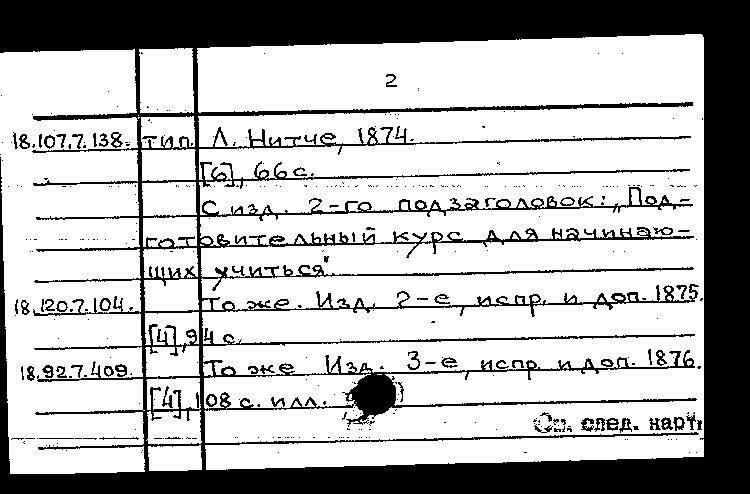 2
18.107.7.138. тип. Л. Нитче, 1874.
[6], 66 с.
С изд. 2-го подзаголовок: „Под-
готовительный курс для начинаю-
щих учиться".
18.120.7.104. То же. Изд. 2-е, испр. и доп. 1875.
[4], 94 с.
18.92.7.409. То же Изд. 3-е, испр. и доп. 1876.
[4], 108 с. илл.
См. след. карт.